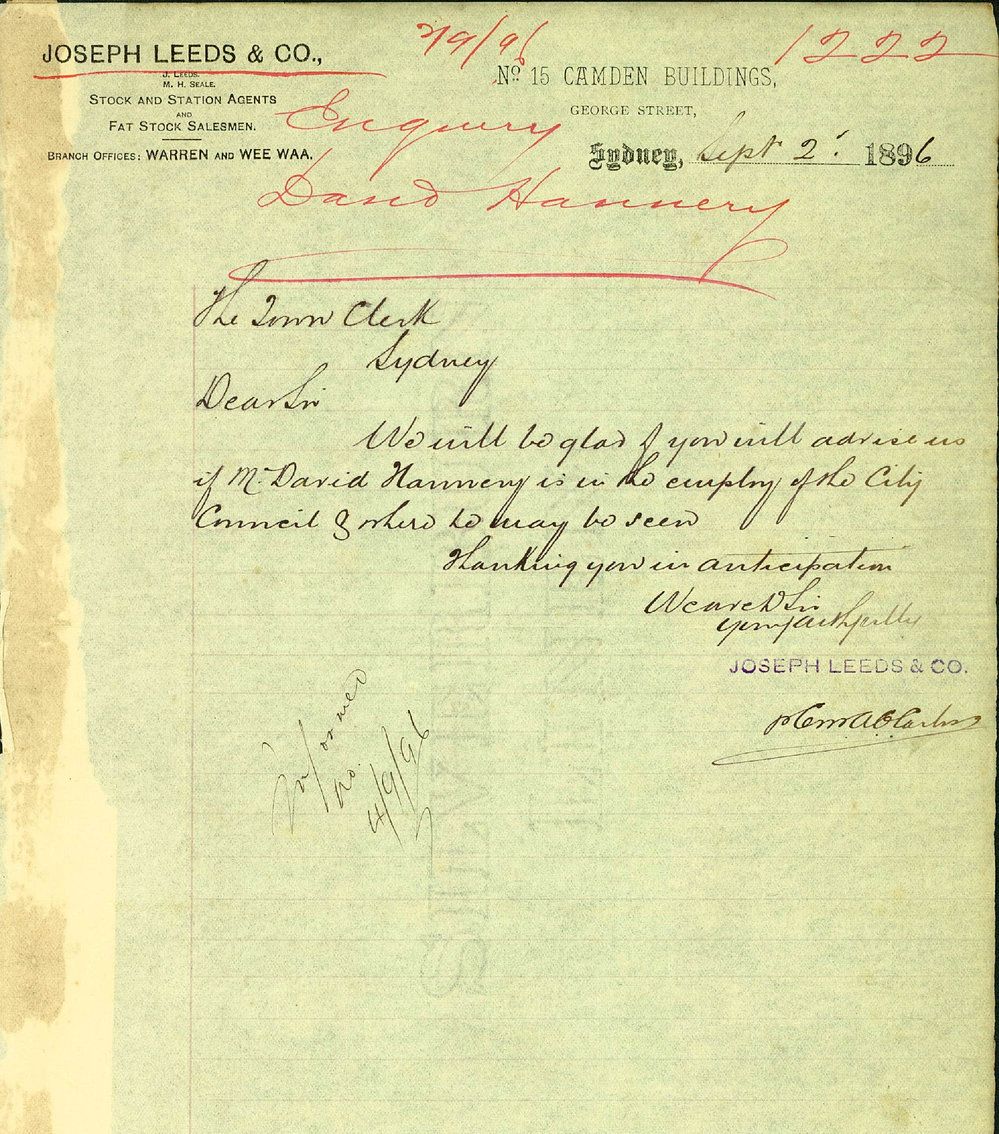 2/9/96
1222
JOSEPH LEEDS & CO.,
J. LEEDS.
M. H. SEALE.
STOCK AND STATION AGENTS
AND
FAT STOCK SALESMEN.
BRANCH OFFICES: WARREN AND WEE WAA.
No 15 CAMDEN BUILDINGS,
GEORGE STREET,
Sydney, Sept 2. 1896
Enquiry
David Hannery
The Town Clerk
Sydney
Dear Sir
We will be glad if you will advise us
if Mr David Hannery is in the employ of the City
Council & where he may be seen
Thanking you in anticipation
We are D Sir
yours faithfully
JOSEPH LEEDS & CO.
Informed
no.
4/9/96